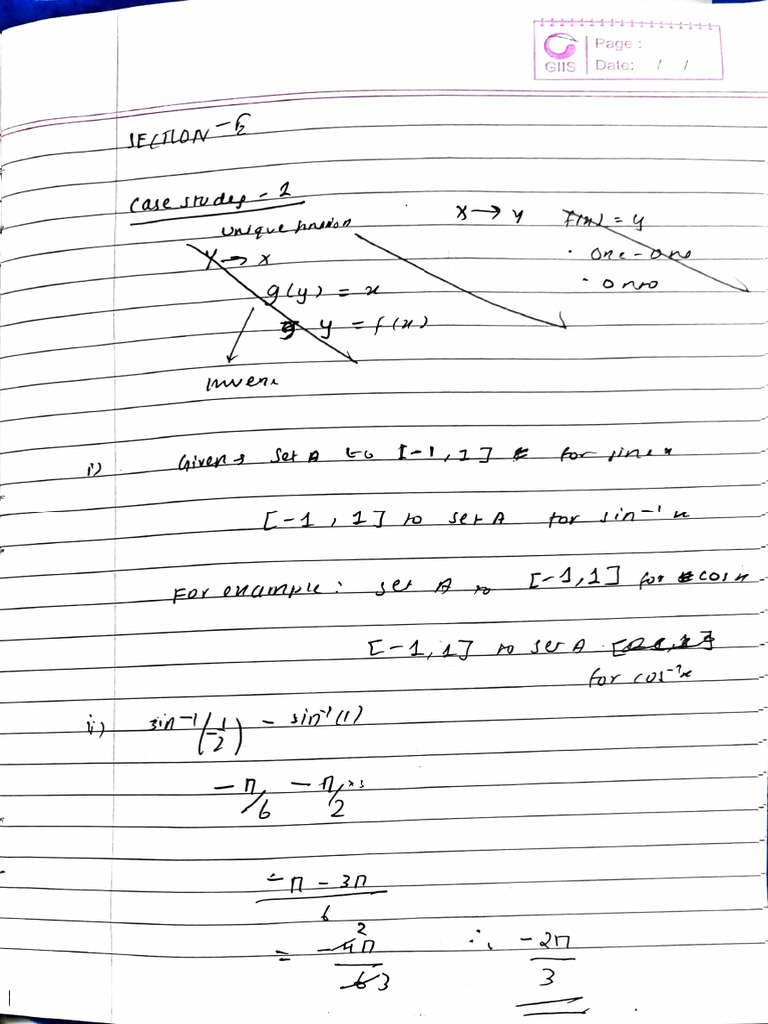 GIIS Page :
Date: / /
SECTION - E
Case study - 1
unique
x → y f(x) = y
Y → x
· one - one
g(y) = x
· onto
y = f(x)
i) Given → Set A to [-1, 1] for sine x
[-1, 1] to set A for sin⁻¹ x
For example : set A to [-1, 1] for cos x
[-1, 1] to set A
for cos⁻¹x
ii) sin⁻¹(-1/2) - sin⁻¹(1)
-π/6 - π/2 ×3
-π - 3π
6
= -4π 2 ∴ -2π
6 3 3